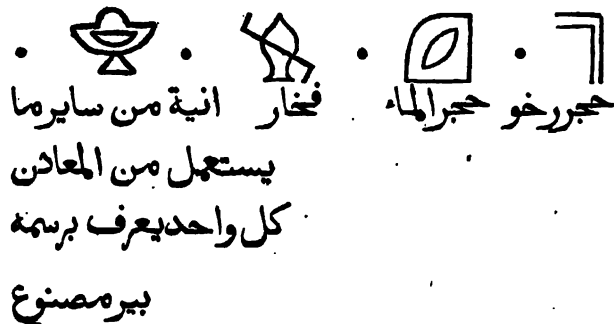 حجر رخو حجر الماء فخار انية من ساير ما
يستعمل من المعادن
كل واحد يعرف برسمه
بير مصنوع